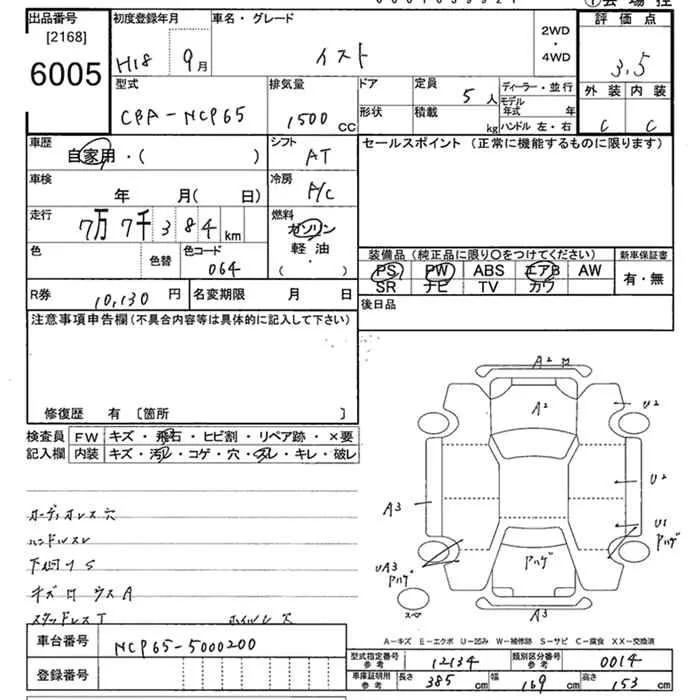 出品番号 初度登録年月 車名・グレード 2WD・4WD 評価点
[2168]
6005 H18 9月 イスト 3.5
型式 排気量 ドア 定員 5人 ディーラー・並行 外装 内装
CBA-NCP65 1500CC 形状 積載 kg モデル年式 年 ハンドル 左・右 C C
車歴 自家用・( ) シフト AT セールスポイント (正常に機能するものに限ります)
車検 年 月( 日) 冷房 A/C
走行 7万7千384km 燃料 ガソリン
軽油・( )
色 色替 色コード 064
装備品(純正品に限り○をつけてください) 新車保証書
PS PW ABS エアB AW 有・無
SR ナビ TV カワ
R券 10,130円 名変期限 月 日 後日品
注意事項申告欄(不具合内容等は具体的に記入して下さい)
修復歴 有 〔箇所 〕
検査員 FW キズ・飛石・ヒビ割・リペア跡・×要
記入欄 内装 キズ・汚レ・コゲ・穴・スレ・キレ・破レ
オーディオレス穴
ハンドルスレ
下廻りS
キズ ウスA
スタッドレスT ホイルレス
A2
A2
U2
U2
A3
U1
ハゲ
UA3
ハゲ
ハゲ
スペア
A3
A-キズ E-エクボ U-凹み W-補修跡 S-サビ C-腐食 XX-交換済
車台番号 NCP65-5000200
登録番号
型式指定番号 参考 12134 類別区分番号 参考 0014
車庫証明用 参考 長さ 385cm 幅 169cm 高さ 153cm